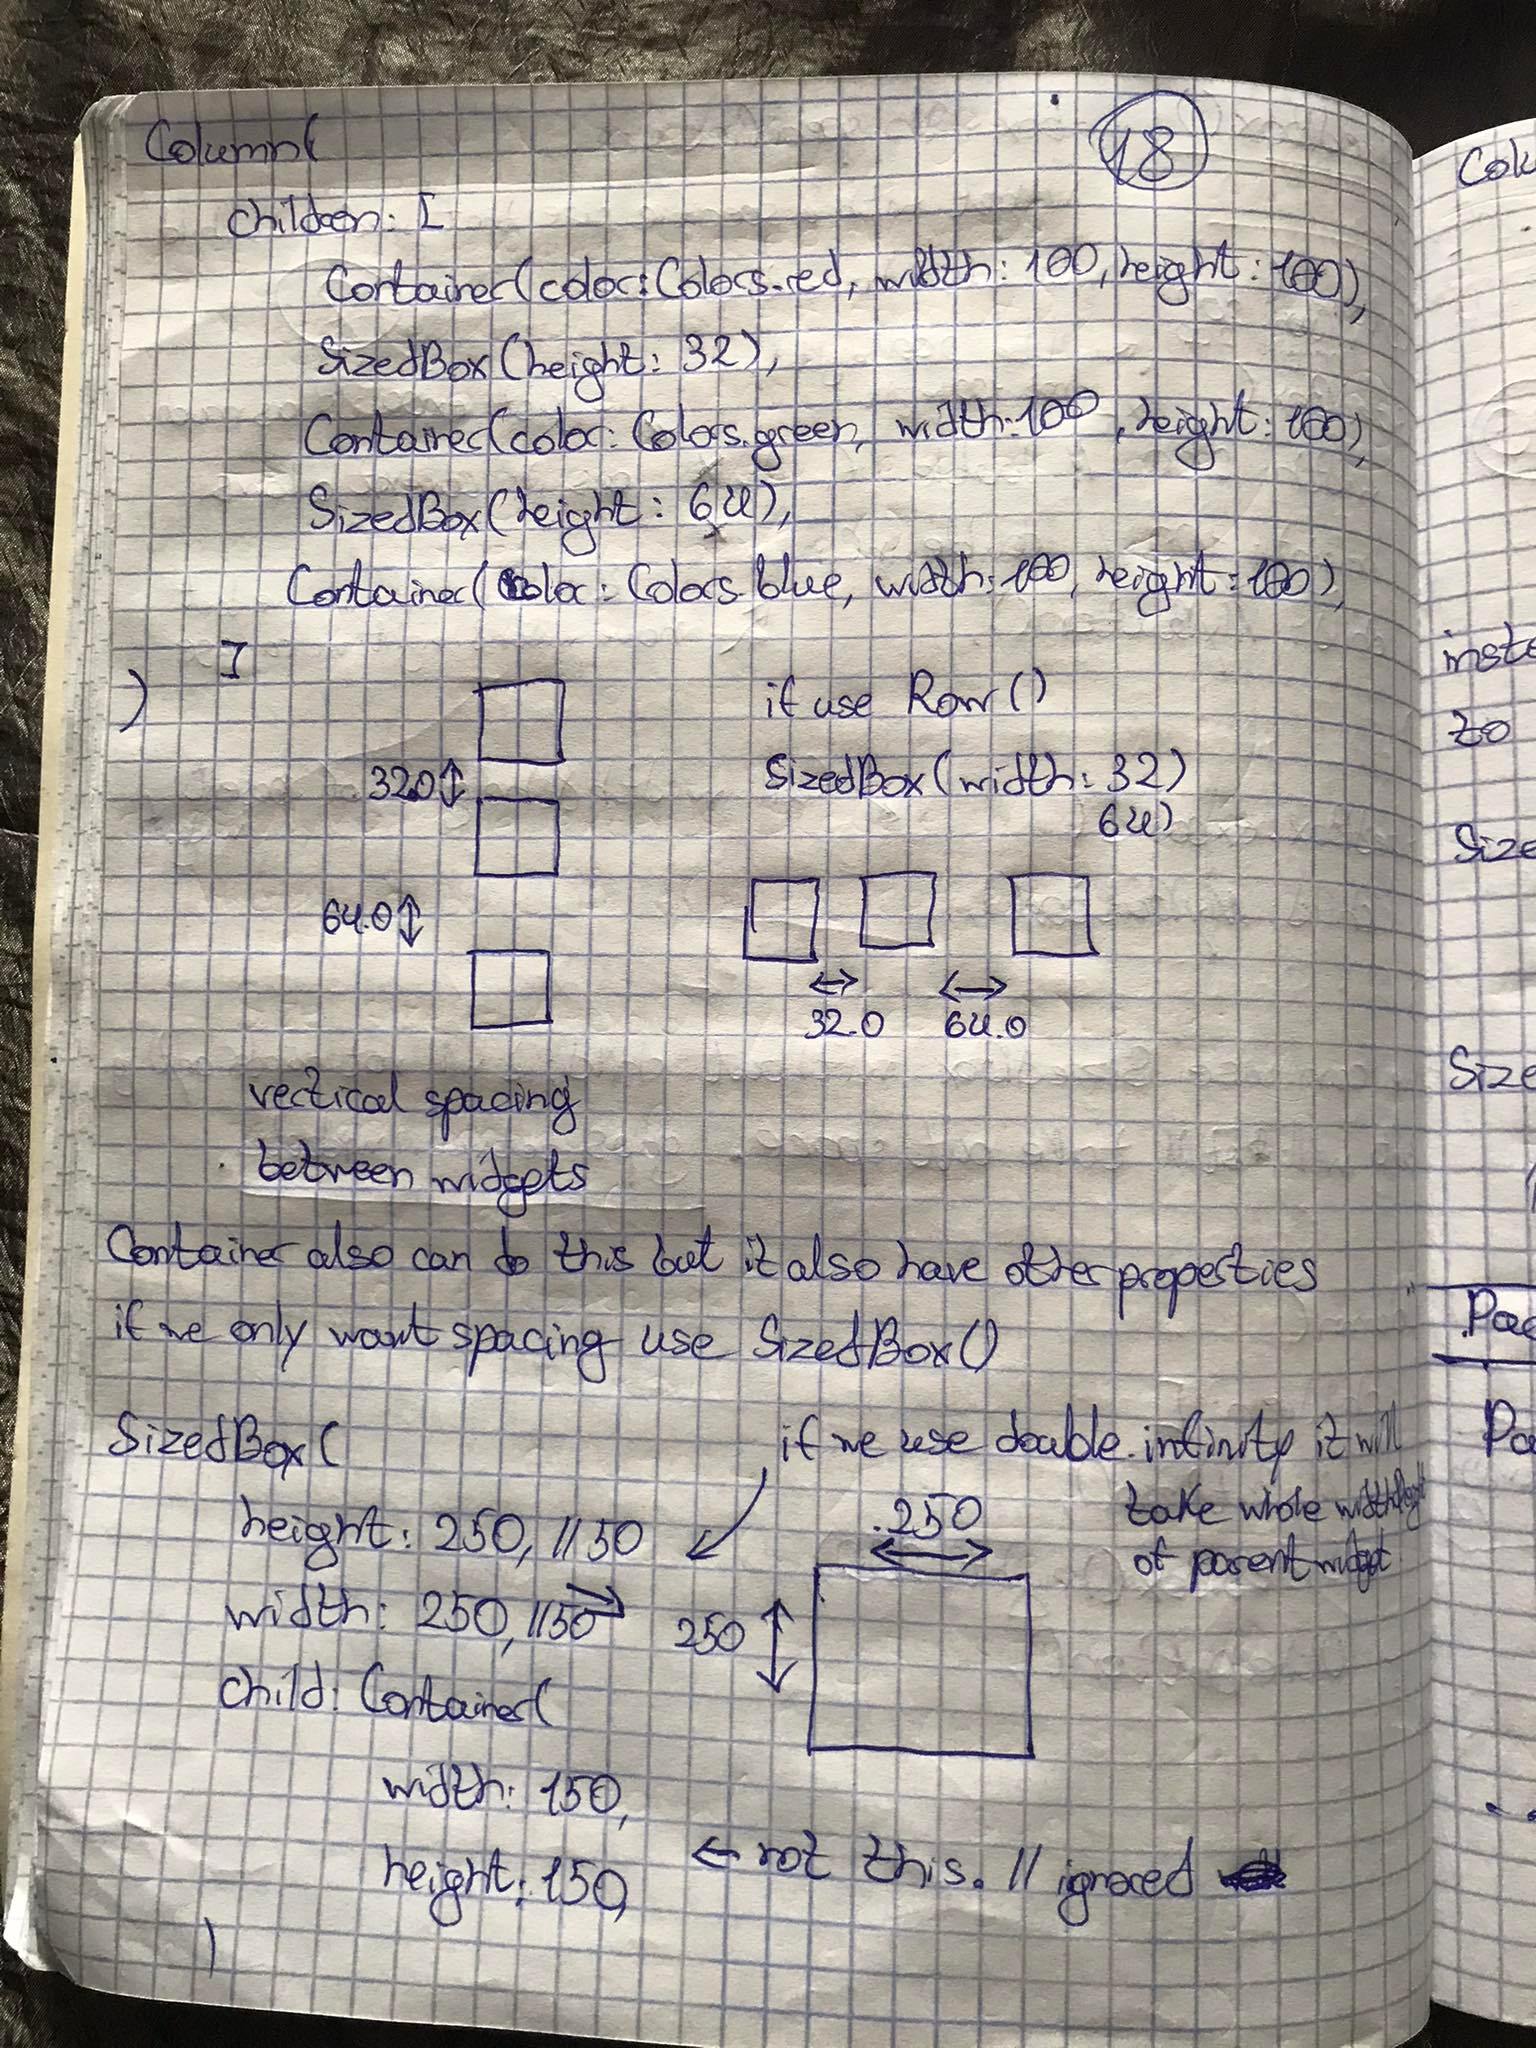 18
Column(
children: [
Container(color: Colors.red, width: 100, height: 100),
SizedBox(height: 32),
Container(color: Colors.green, width: 100, height: 100),
SizedBox(height: 64),
Container(color: Colors.blue, width: 100, height: 100),
]
)
32.0
64.0
vertical spacing
between widgets
if use Row()
SizedBox(width: 32)
64)
32.0 64.0
Container also can do this but it also have other properties
if we only want spacing use SizedBox()
SizedBox(
height: 250, //50
width: 250, //50
child: Container(
width: 150,
height: 150,
)
if we use double.infinity it will
take whole width
of parent widget
250
250
← not this. // ignored
Colu
inste
to
Size
Size
Pad
Pa